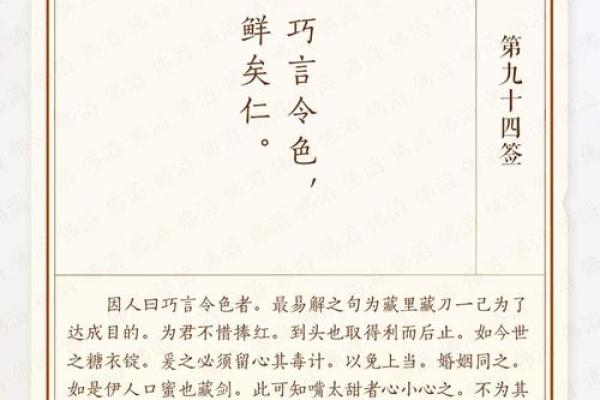 第九十四签
巧言令色，
鲜矣仁。
因人曰巧言令色者。最易解之句为藏里藏刀一己为了
达成目的。为君不惜捧红。到头也取得利而后止。如今世
之糖衣锭。爰之必须留心其毒计。以免上当。婚姻同之。
如是伊人口蜜也藏剑。此可知嘴太甜者心小心之。不为其